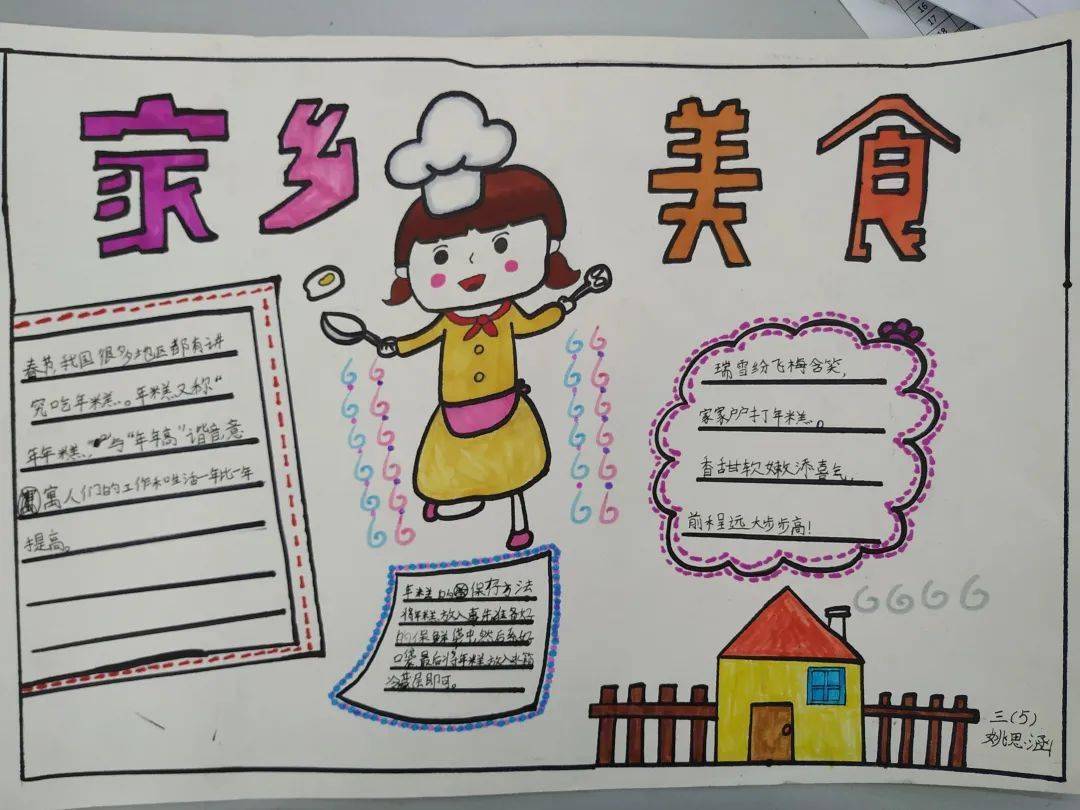 家乡美食
春节,我国很多地区都有讲
究吃年糕。年糕又称“
年年糕”与“年年高”谐音,意
寓人们的工作和生活一年比一年
提高。
年糕的保存方法
将年糕放入事先准备好
的保鲜袋中,然后系好
口袋最后将年糕放入冰箱
冷藏层即可。
瑞雪纷飞梅含笑,
家家户户打年糕。
香甜软嫩添喜气,
前程远大步步高!
三(5)
姚思涵
16
17
18